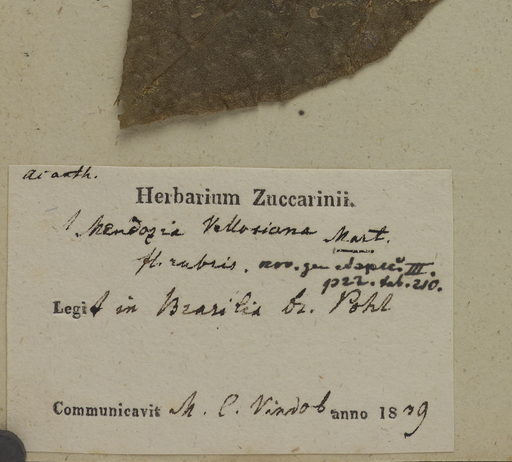 Acanth.
Herbarium Zuccarinii.
Mendozia Vellosiana Mart.
fl. rubris. nov. gen et spec. III.
p 22. tab. 210.
Legit in Brasilia Dr. Pohl
Communicavit M. C. Vindob anno 1839